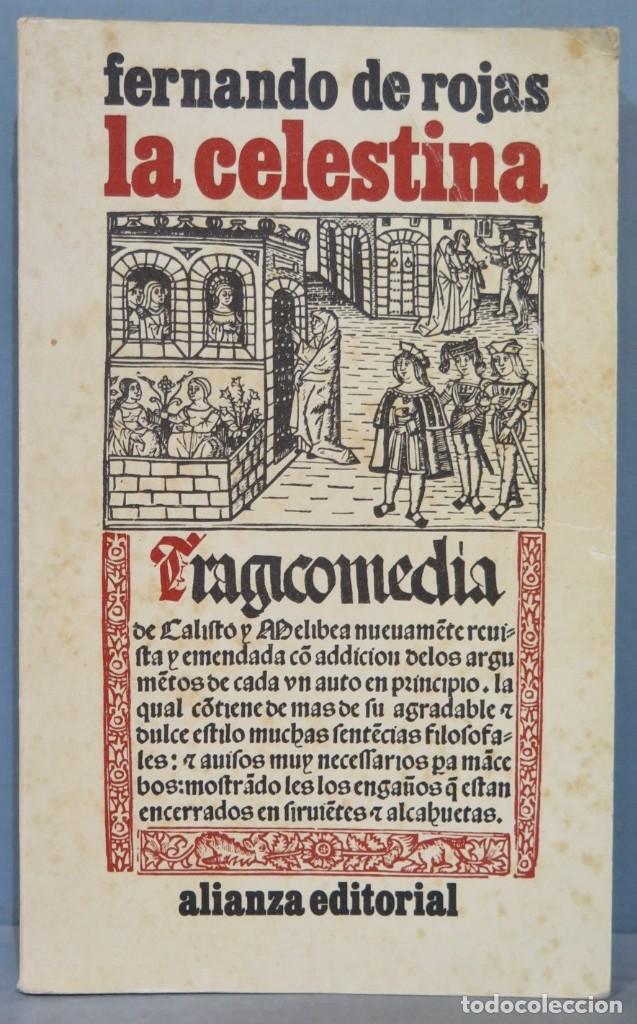 fernando de rojas
la celestina
Tragicomedia
de Calisto y Melibea nueuamẽte reui-
sta y emendada cõ addicion delos argu
mẽtos de cada vn auto en principio. la
qual cõtiene de mas de su agradable ⁊
dulce estilo muchas sentẽcias filosofa-
les: ⁊ auisos muy necessarios pa mãce
bos: mostrãdo les los engaños q̃ estan
encerrados en siruiẽtes ⁊ alcahuetas.
alianza editorial
todocoleccion